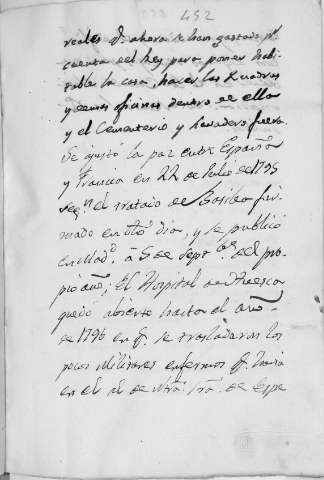 452
reales q. ahora se han gastado pr.
cuenta del Rey para poner habi-
tables la casa, hacer las quadras
y demas oficinas dentro de ella
y el Cementerio y lavadero fuera.
Se ajustó la paz entre España
y Francia en 22 de Julio de 1795
segn. el tratado de Basilea fir-
mado en dho dia, y se publicó
en Madd. á 5 de Septre. del pro-
pio año; El Hospital de Huesca
quedó abierto hasta el año
de 1796 en q. se trasladaron los
pocos Militares enfermos q. havia
en el al de Ntra. Sra. de Espe